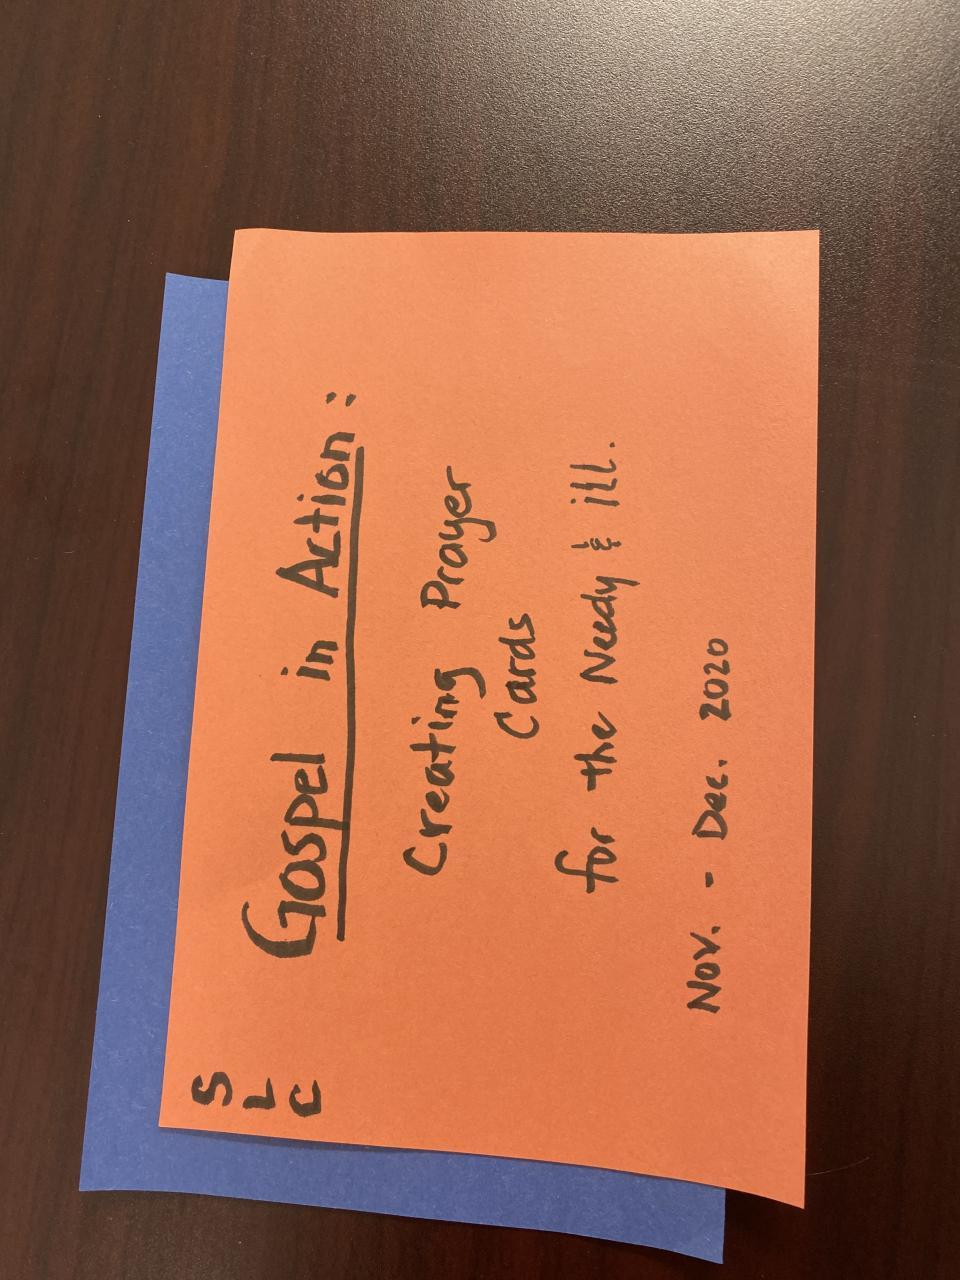 S
L
C
Gospel in Action:
Creating Prayer
Cards
for the Needy & ill.
Nov. - Dec. 2020